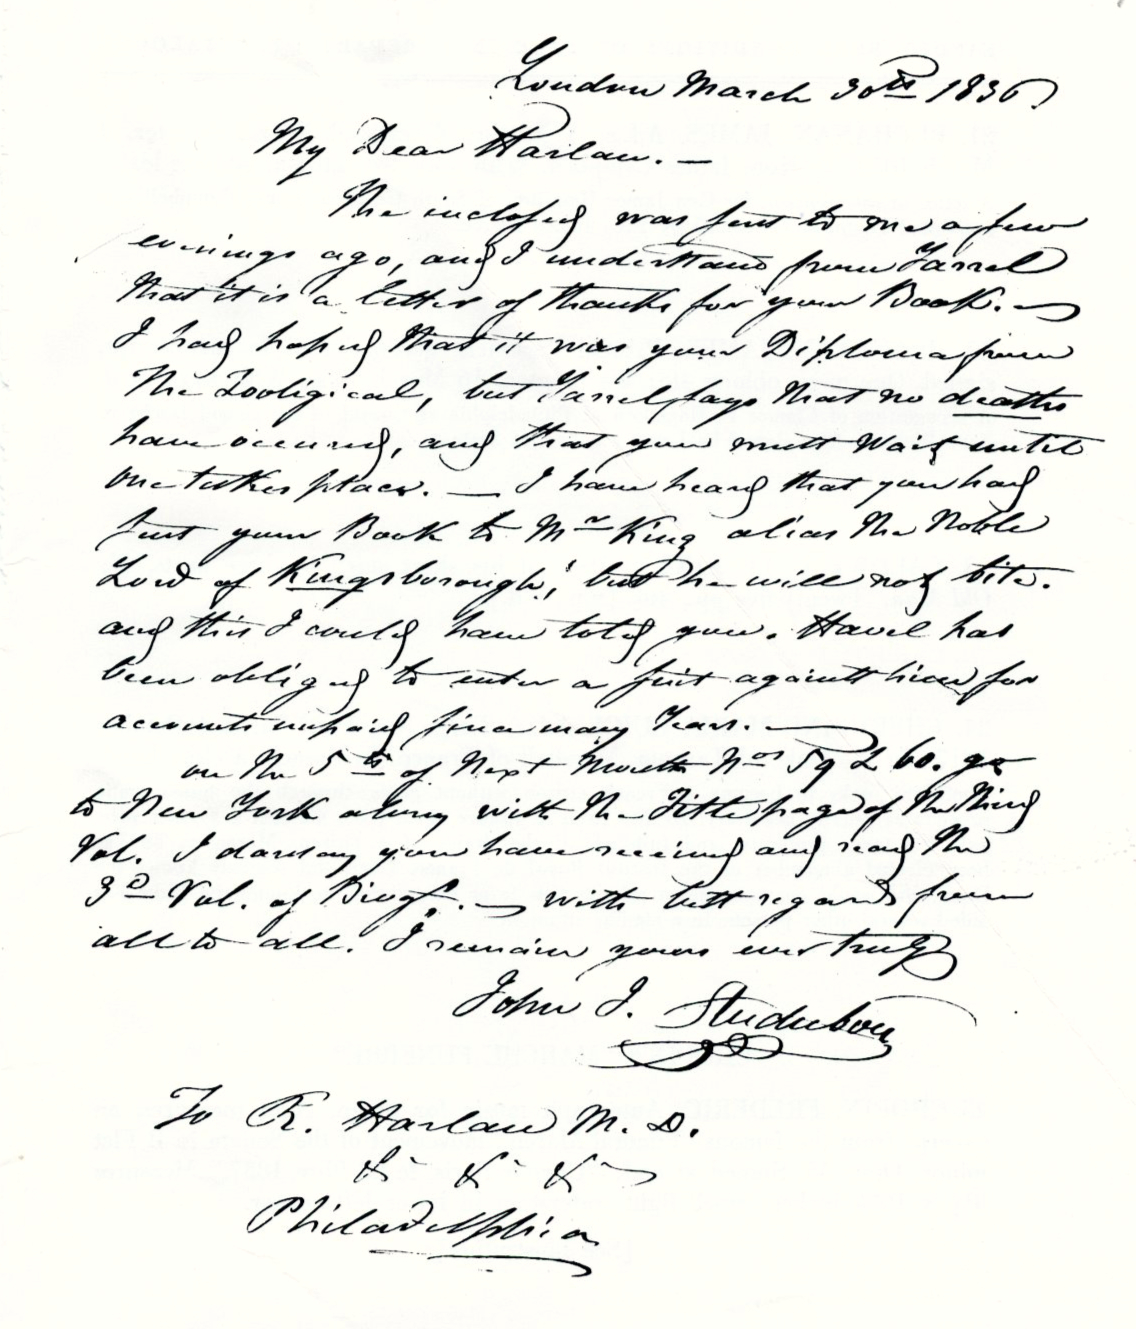 London March 30th 1836.
My Dear Harlan. —
The inclosed was sent to me a few
evenings ago, and I understand from Yarrel
that it is a letter of thanks for your Book. —
I had hoped that it was your Diploma from
the Zooligical, but Yarrel says that no deaths
have occured, and that you must wait until
one takes place. — I have heard that you had
sent your Book to Mr King alias the Noble
Lord of Kingsborough! but he will not bite.
and this I could have told you. Havel has
been obliged to enter a suit against him for
accounts unpaid since many Years. —
on the 5th of Next Month Nos 59 & 60. go
to New York along with the Title page of the Third
Vol. I daresay you have received and read the
3d Vol. of Biogy. — with best regards from
all to all. I remain yours ever truly
John J. Audubon
To R. Harlan M. D.
&c &c &c
Philadelphia